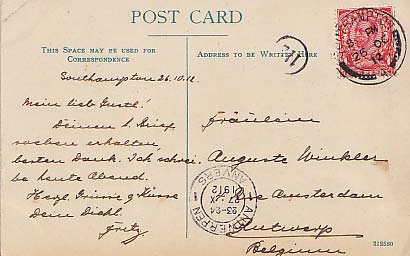 POST CARD
THIS SPACE MAY BE USED FOR
CORRESPONDENCE
ADDRESS TO BE WRITTEN HERE
Southampton 26.10.12.
Mein lieb Gustl!
Deinen l. Brief
soeben erhalten,
besten Dank. Ich schrei-
be heute Abend.
Herzl. Grüsse & Küsse
Dein Dichl.
Fritz
Fräulein
Auguste Winkler
Rue Amsterdam
Antwerp
Belgium
ANTWERPEN
23-24
27 IX
1912
ANVERS
SOUTHAMPTON
PM
26 OC
12
212580